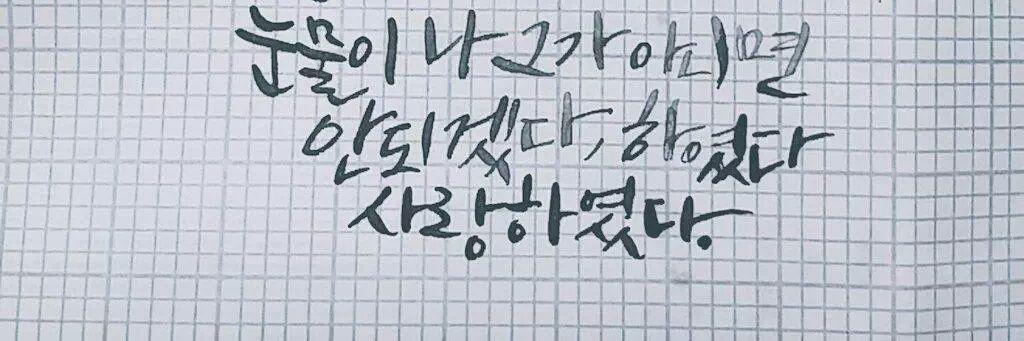 눈물이 나 그가 아니면
안되겠다, 하였다
사랑하였다.